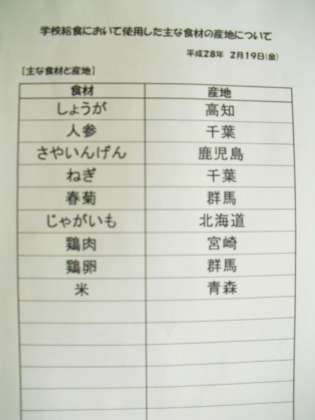 学校給食において使用した主な食材の産地について
平成28年 2月19日(金)
[主な食材と産地]
食材 産地
しょうが 高知
人参 千葉
さやいんげん 鹿児島
ねぎ 千葉
春菊 群馬
じゃがいも 北海道
鶏肉 宮崎
鶏卵 群馬
米 青森